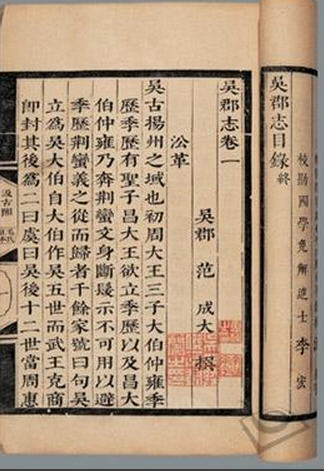 吳郡志目錄終
校勘國學免解進士李宏
吳郡志卷一
吳郡 范 成大 撰
沿革
吳古揚州之域也初周大王三子大伯仲雍季
歷季歷有聖子昌大王欲立季歷以及昌大
伯仲雍乃奔荊蠻文身斷髮示不可用以避
季歷荊蠻義之從而歸者千餘家號曰句吳
立爲吳大伯自大伯作吳五世而武王克商
卽封其後爲二曰虞曰吳後十二世當周惠
汲古閣